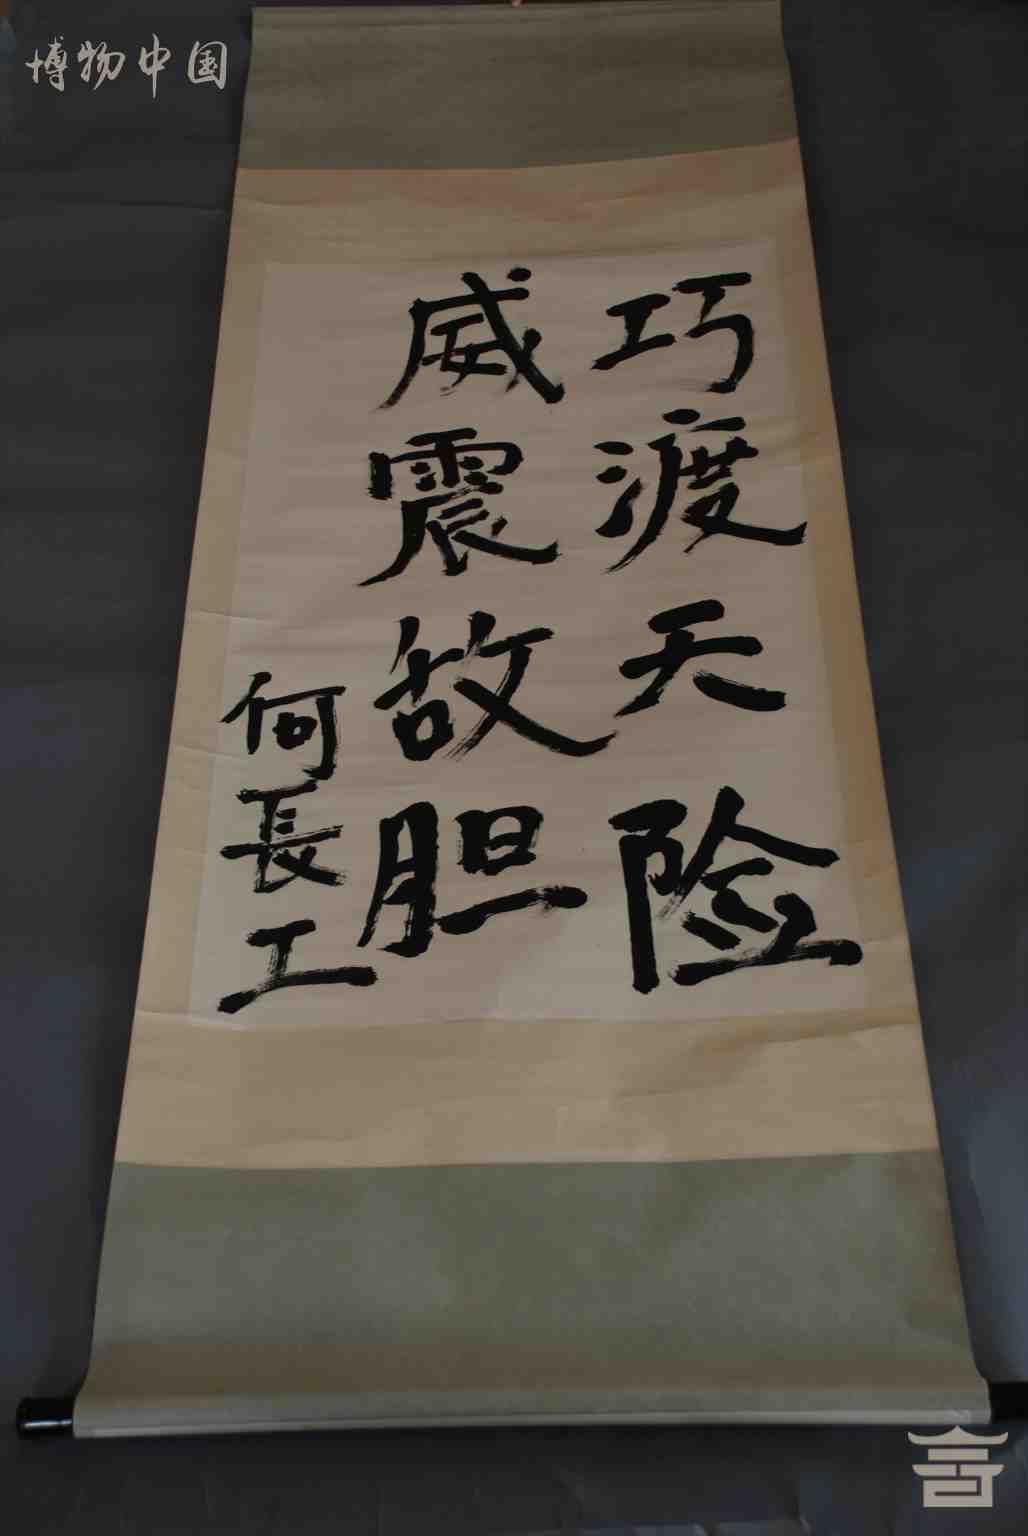 博物中国
巧渡天险
威震敌胆
何長工